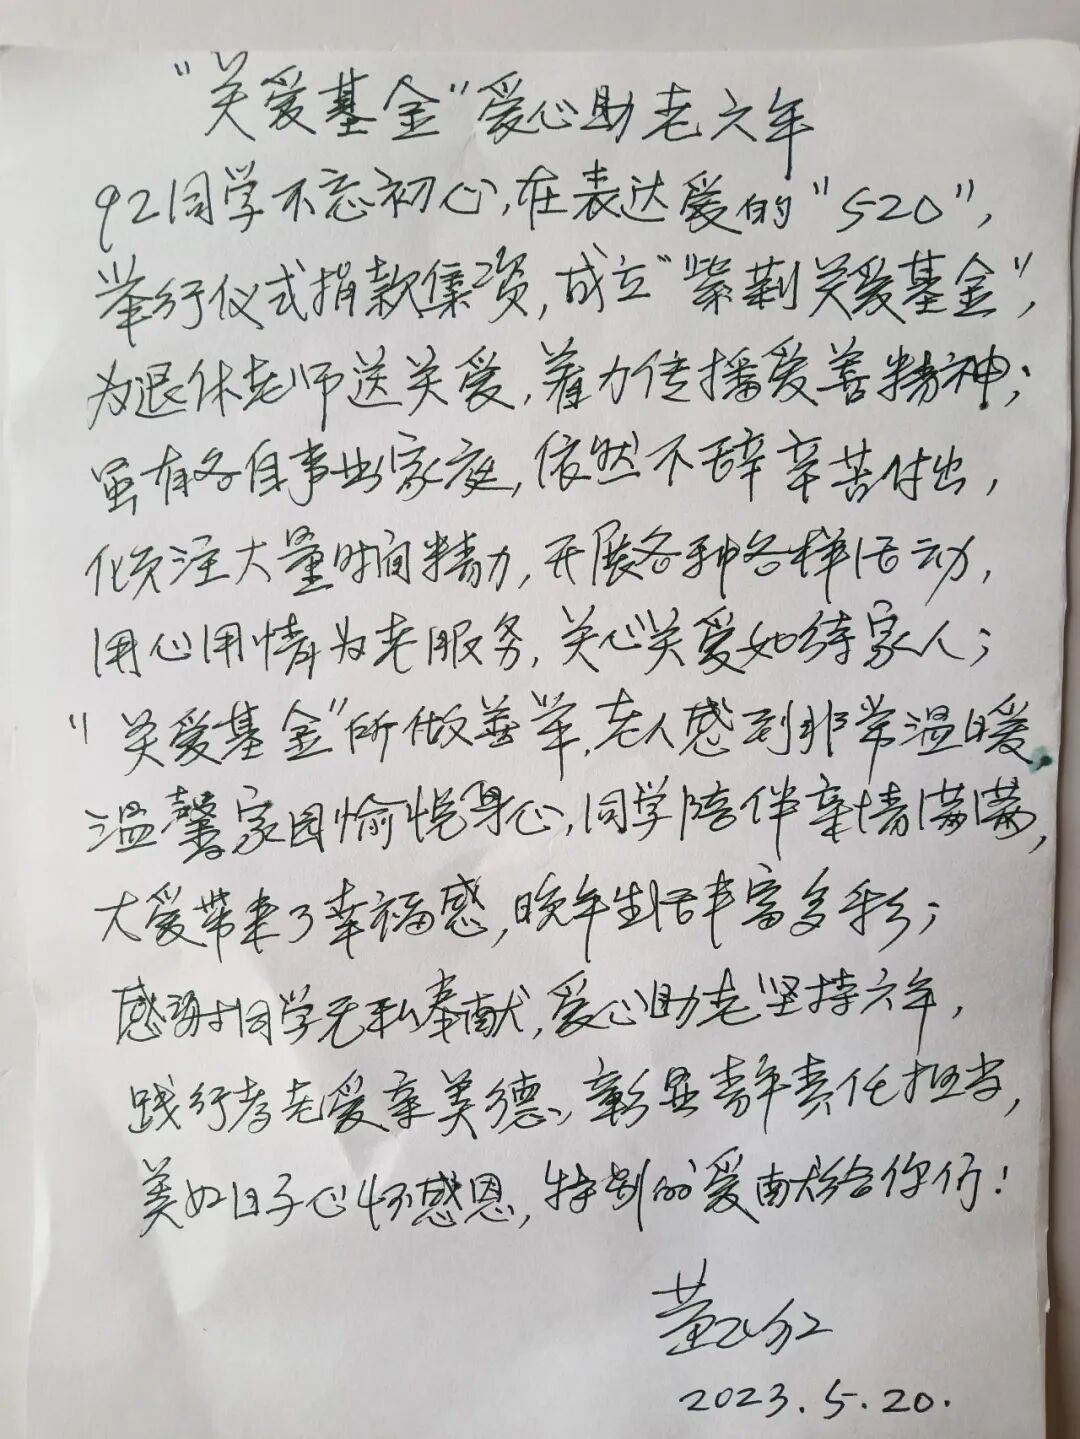 “关爱基金”爱心助老六年
92同学不忘初心,在表达爱的“520”,
举行仪式捐款集资,成立“紫荆关爱基金”,
为退休老师送关爱,着力传播爱善精神;
虽有各自事业家庭,依然不辞辛苦付出,
倾注大量时间精力,开展各种各样活动,
用心用情为老服务,关心关爱如待家人;
“关爱基金”所做善举,老人感到非常温暖,
温馨家园愉悦身心,同学陪伴亲情满满,
大爱带来了幸福感,晚年生活丰富多彩;
感谢同学无私奉献,爱心助老坚持六年,
践行孝老爱亲美德,彰显青年责任担当,
美好日子心怀感恩,特别的爱献给你们!
2023.5.20.